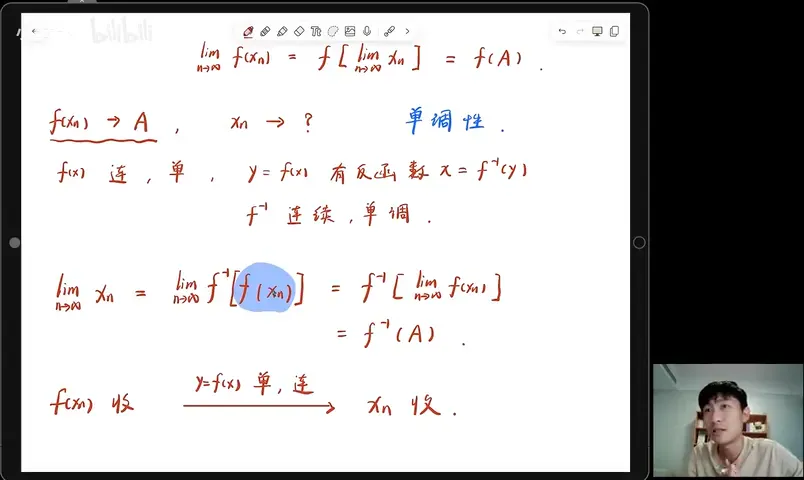 bilibili
lim n→∞ f(xn) = f [ lim n→∞ xn ] = f(A) .
f(xn) → A , xn → ? 单调性 .
f(x) 连 , 单 , y = f(x) 有反函数 x = f⁻¹(y)
f⁻¹ 连续 , 单调 .
lim n→∞ xn = lim n→∞ f⁻¹[f(xn)] = f⁻¹ [ lim n→∞ f(xn) ]
= f⁻¹(A) .
y=f(x) 单 , 连
f(xn) 收 → xn 收 .